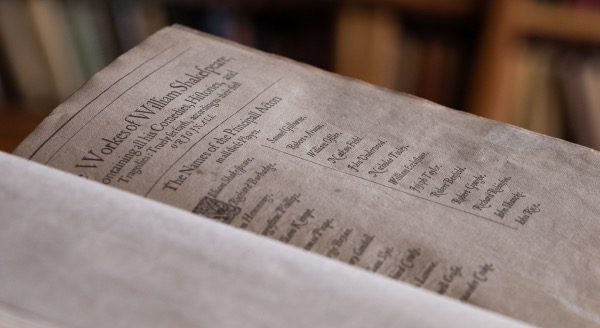 Workes of William Shakespeare,
containing all his Comedies, Histories, and
Tragedies: Truely set forth, according to their first
ORIGINALL.
The Names of the Principall Actors
in all these Playes.
William Shakespeare.
Richard Burbadge.
Hemmings.
Phillips.
Kempt.
Pope.
Bryan.
Condell.
Slye.
Cowly.
Lowine.
Crosse.
Cooke.
Samuel Gilburne.
Robert Armin.
William Ostler.
Nathan Field.
John Underwood.
Nicholas Tooley.
William Ecclestone.
Joseph Taylor.
Robert Benfield.
Robert Goughe.
Richard Robinson.
John Shancke.
John Rice.